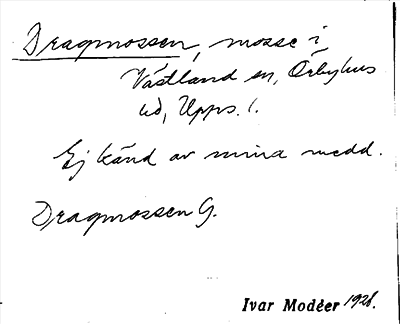 Dragmossen, mosse i
Västland sn, Örbyhus
hd, Upps. l.
Ej känd av mina medd.
Dragmossen G.
Ivar Modéer 1928.